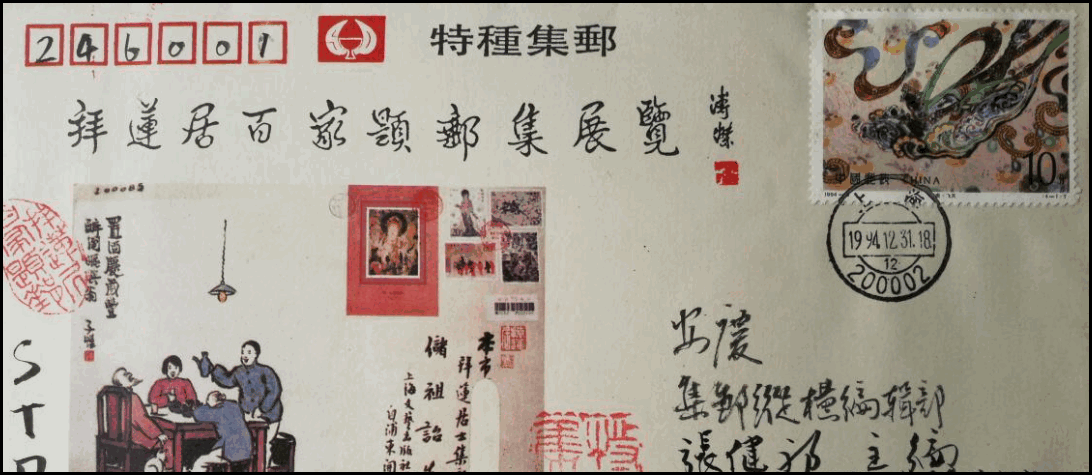 246001
特種集郵
拜蓮居百家題郵集展覽
溥傑
中國郵政 CHINA
10
上海
1994.12.31.18
12
200002
200085
置酒慶歲豐
醉倒嫗與翁
子愷
本市
拜蓮居士集
儲祖詒
上海文藝出版社
安慶
集郵縱橫編輯部
張健初 主編
ST